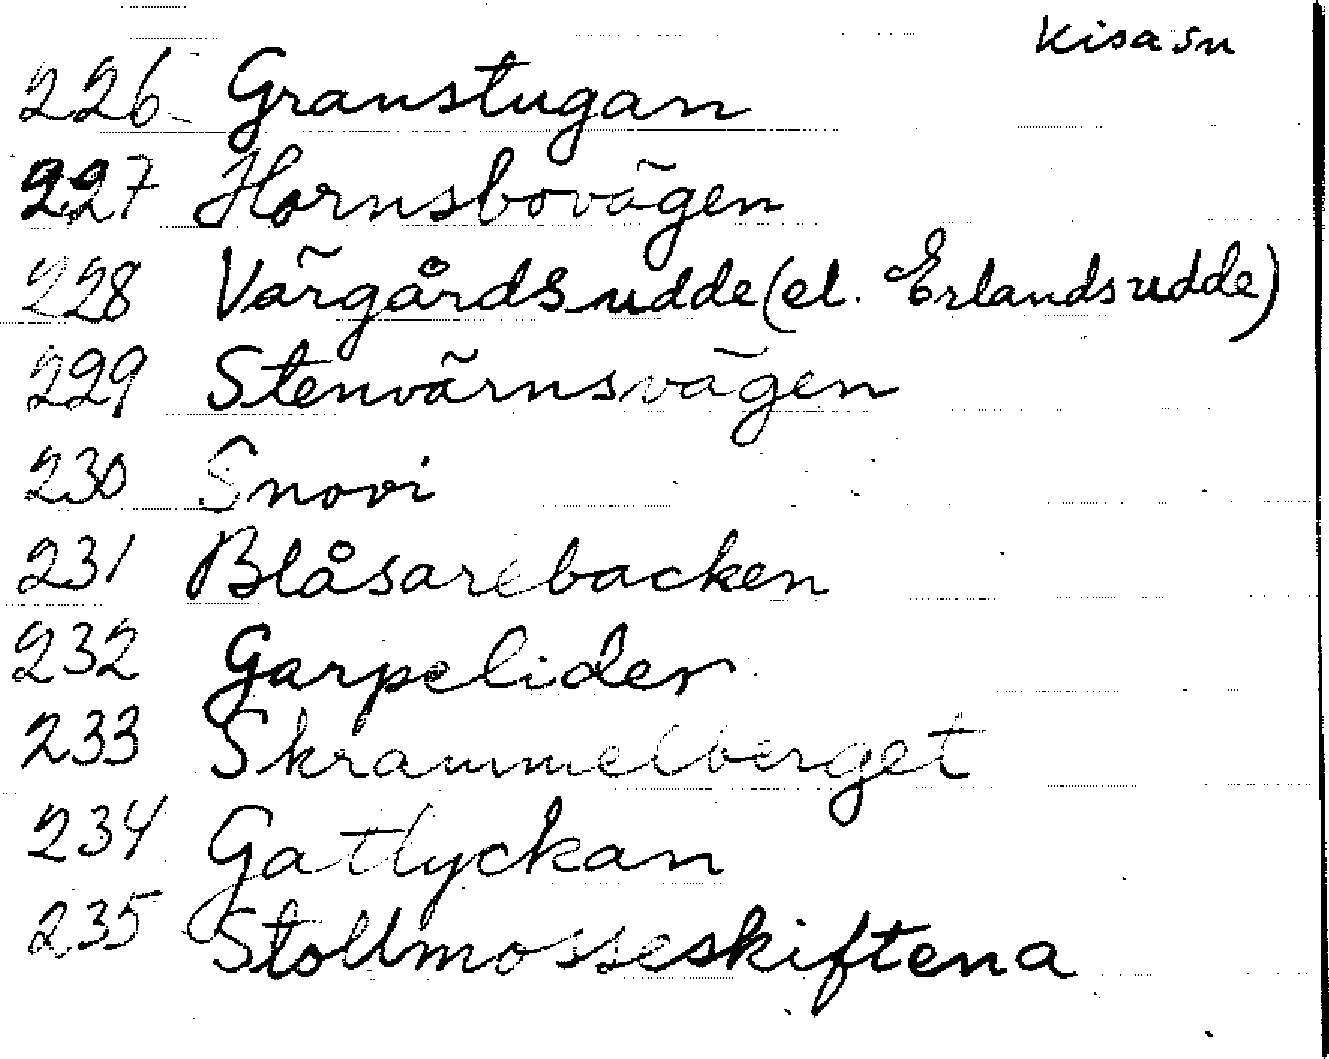 Kisa sn
226 Granstugan
227 Hornsbovägen
228 Värgårdsudde (el. Erlandsudde)
229 Stenvärnsvägen
230 Snovi
231 Blåsarebacken
232 Garpelider
233 Skrammelberget
234 Gatlyckan
235 Stollmosseskiftena